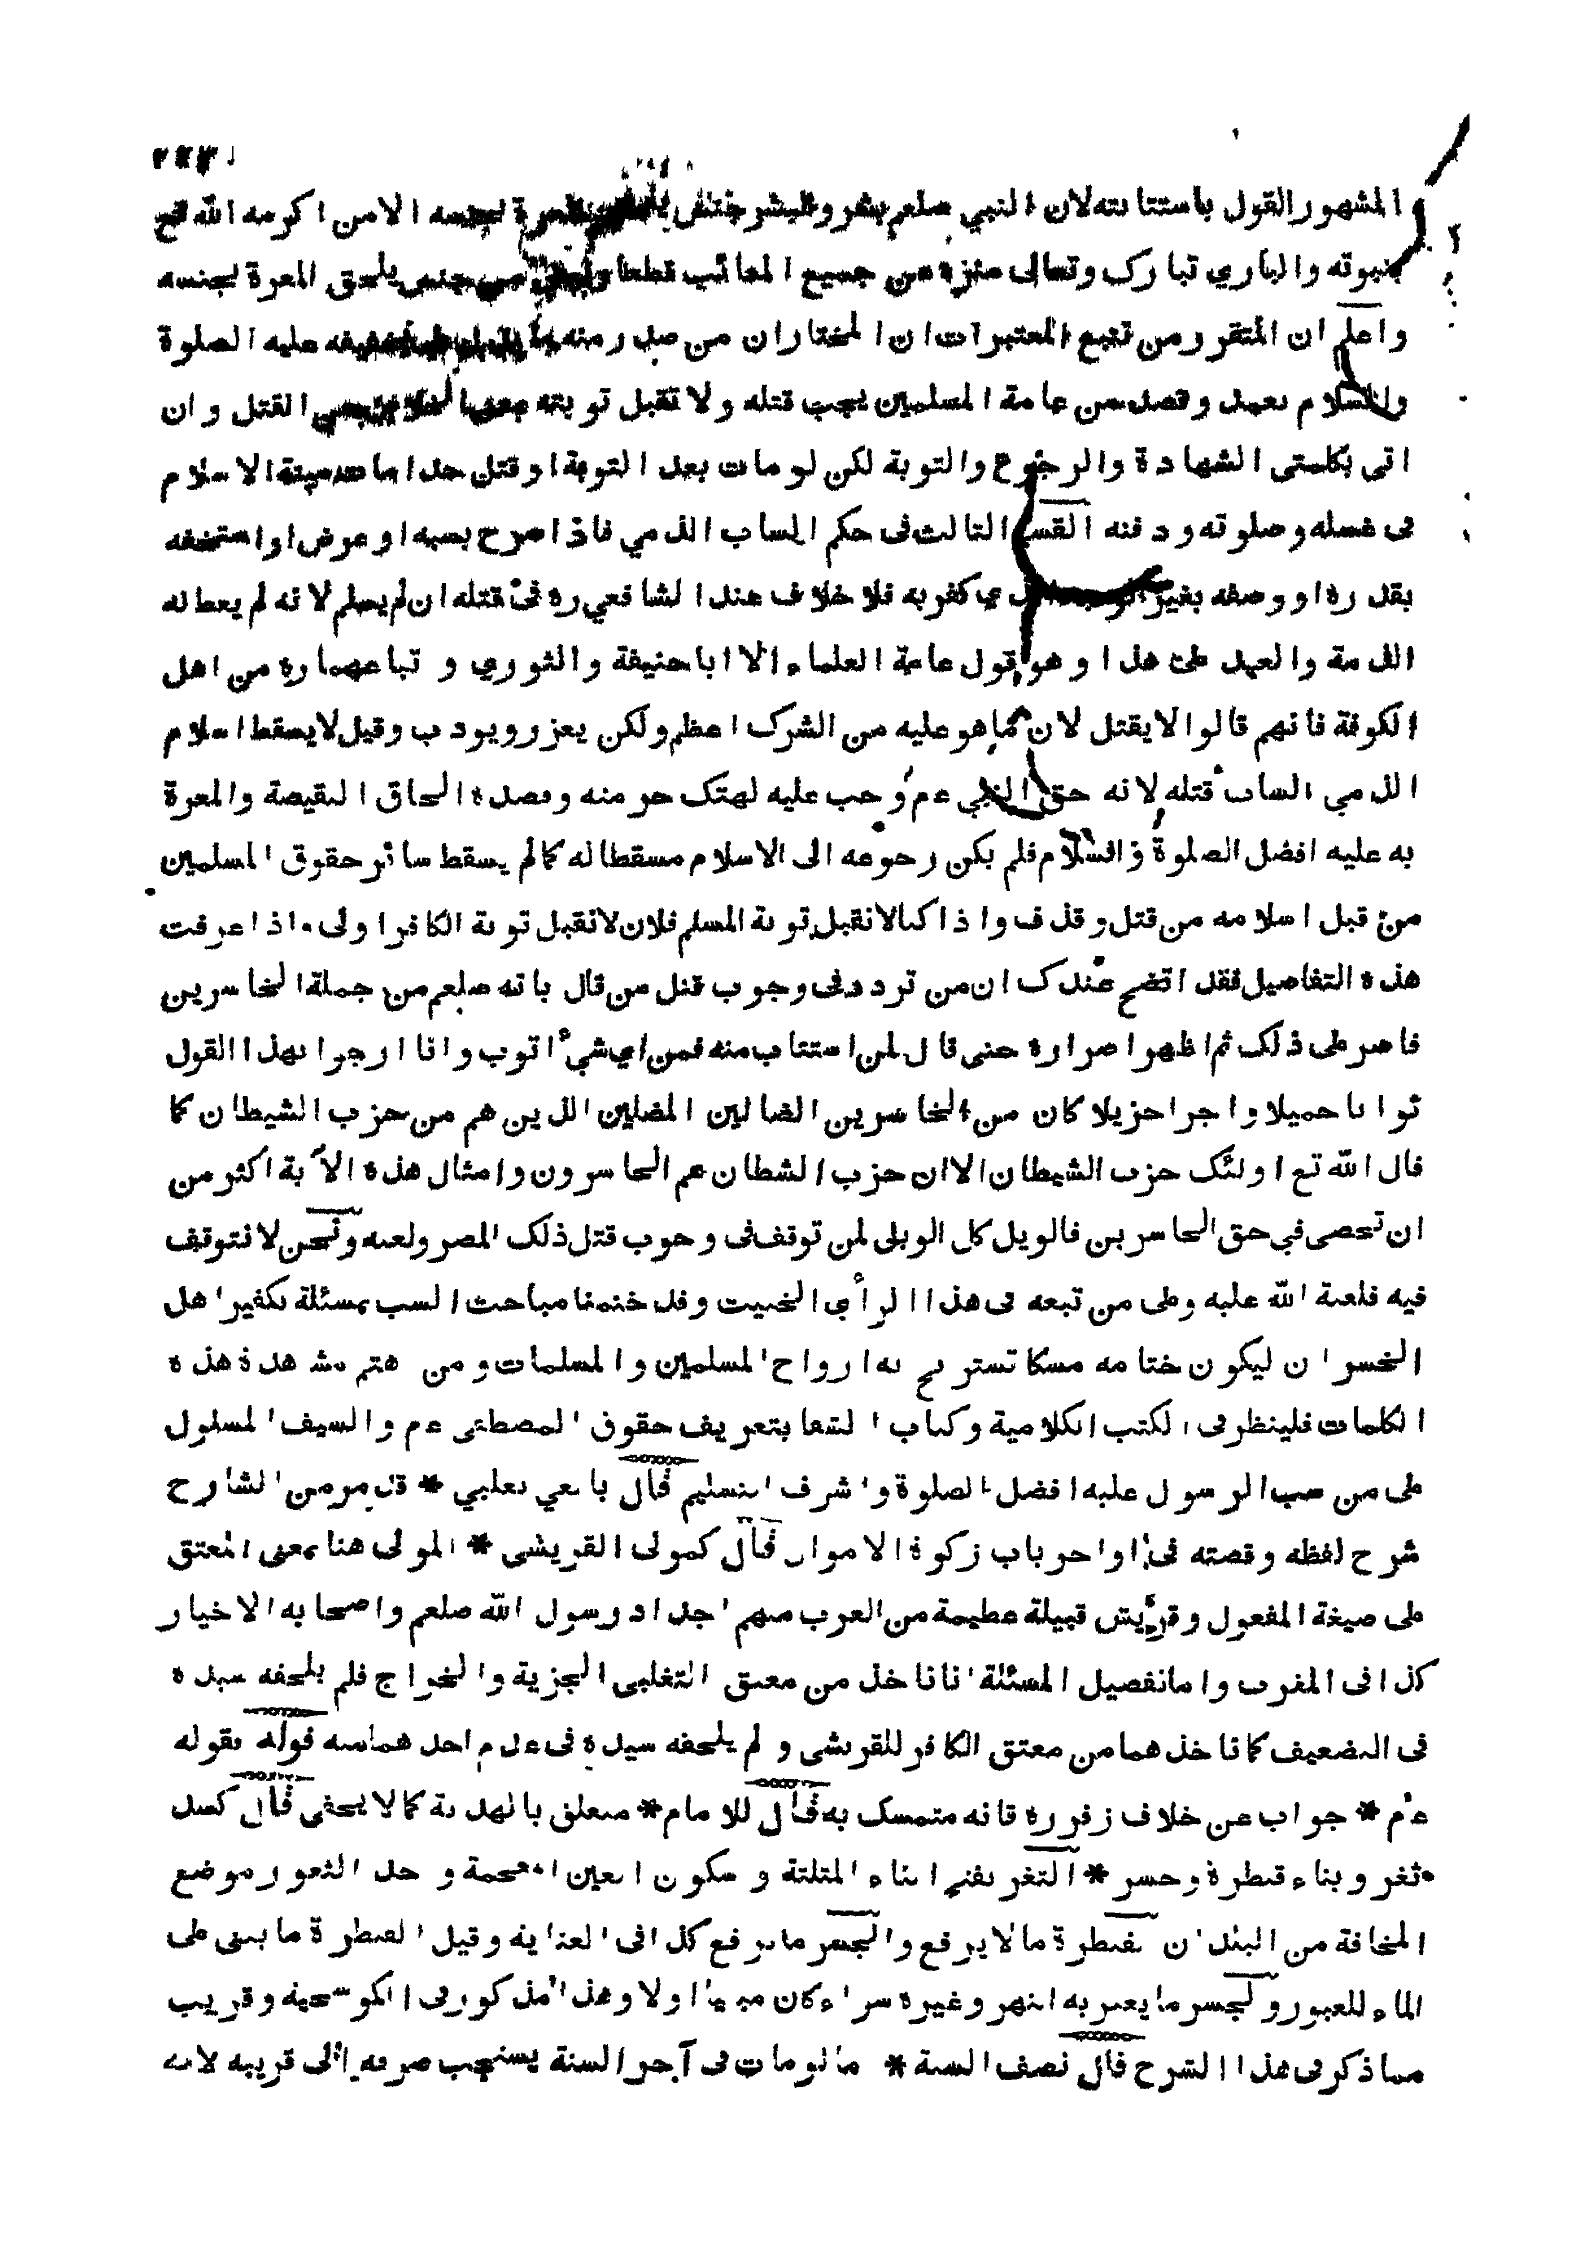 المشهور القول باستتابته لان النبي صلعم بشر والبشر جنس المعرة لجنسه الا من اكرمه الله تع
بنبوته والباري تبارك وتعالى منزه من جميع المعائب قطعا جنس يلحق المعرة بجنسه
واعلم ان المتقرر من تتبع المعتبرات ان المختار ان من صدر منه عليه الصلوة
والسلام بعمد وقصد من عامة المسلمين يجب قتله ولا تقبل توبته القتل وان
اتى بكلمتى الشهادة والرجوع والتوبة لكن لو مات بعد التوبة او قتل حدا مات ميتة الاسلام
فى غسله وصلوته ودفنه القسم الثالث فى حكم الساب الذمي فاذا صرح بسبه او عرض او استخفه
بقدره او وصفه بغير كفر به فلا خلاف عند الشافعي ره فى قتله ان لم يسلم لانه لم يعط له
الذمة والعهد على هذا وهو قول عامة العلماء الا ابا حنيفة والثوري وتباعهما ره من اهل
الكوفة فانهم قالوا لا يقتل لان ما هو عليه من الشرك اعظم ولكن يعزر ويودب وقيل لا يسقط اسلام
الذمي الساب قتله لانه حق النبي عم وجب عليه لهتك حرمته وقصده الحاق النقيصة والمعرة
به عليه افضل الصلوة والسلام فلم يكن رجوعه الى الاسلام مسقطا له كما لم يسقط سائر حقوق المسلمين
من قبل اسلامه من قتل وقذف واذا كنا لا نقبل توبة المسلم فلان لا نقبل توبة الكافر اولى • اذا عرفت
هذه التفاصيل فقد اتضح عندك ان من تردد فى وجوب قتل من قال بانه صلعم من جملة الخاسرين
فاصر على ذلك ثم اظهر اصراره حتى قال لمن استتاب منه فمن اي شيء اتوب وانا ارجوا بهذا القول
ثوابا جميلا واجرا جزيلا كان من الخاسرين الضالين المضلين الذين هم من حزب الشيطان كما
قال الله تع اولئك حزب الشيطان الا ان حزب الشطان هم الخاسرون وامثال هذه الآية اكثر من
ان تحصى في حق الخاسرين فالويل كل الويل لمن توقف فى وجوب قتل ذلك المصر ولعنه ونحن لا نتوقف
فيه فلعنة الله عليه وعلى من تبعه فى هذا الرأي الخبيث وقد ختمنا مباحث السب بمسئلة تكفير اهل
الخسران ليكون ختامه مسكا تستريح به ارواح المسلمين والمسلمات ومن هذه
الكلمات فلينظر فى الكتب الكلامية وكتاب الشفا بتعريف حقوق المصطفى عم والسيف المسلول
على من سب الرسول عليه افضل الصلوة واشرف التسليم قال باىعي تغلبي * قد مر من الشارح
شرح لفظه وقصته فى اواخر باب زكوة الاموال قال كمولى القريشى * المولى هنا بمعنى المعتق
على صيغة المفعول وقريش قبيلة عظيمة من العرب منهم اجداد رسول الله صلعم واصحابه الاخيار
كذا فى المغرب واما تفصيل المسئلة انا ناخذ من معتق التغلبى الجزية والخراج فلم يلحقه سيده
فى التضعيف كما ناخذ هما من معتق الكافر للقريشى ولم يلحقه سيده فى عدم اخذ هما منه قوله بقوله
عم * جواب عن خلاف زفر ره فانه متمسك به قال للامام * متعلق بالهدية كما لا يخفى قال كسد
ثغر وبناء قنطرة وجسر * الثغر بفتح الثاء المثلثة وسكون الغين المعجمة وحد الثغور موضع
المخافة من البلدان قنطرة ما لا يرفع والجسر ما يرفع كذا فى العناية وقيل القنطرة ما يبنى على
الماء للعبور والجسر ما يعبر به النهر وغيره سواء كان مبنيا اولا وهذا مذكور فى وقريب
مما ذكر فى هذا الشرح قال نصف السنة * ما لو مات فى آخر السنة يستحب صرفه الى قريبه لانه